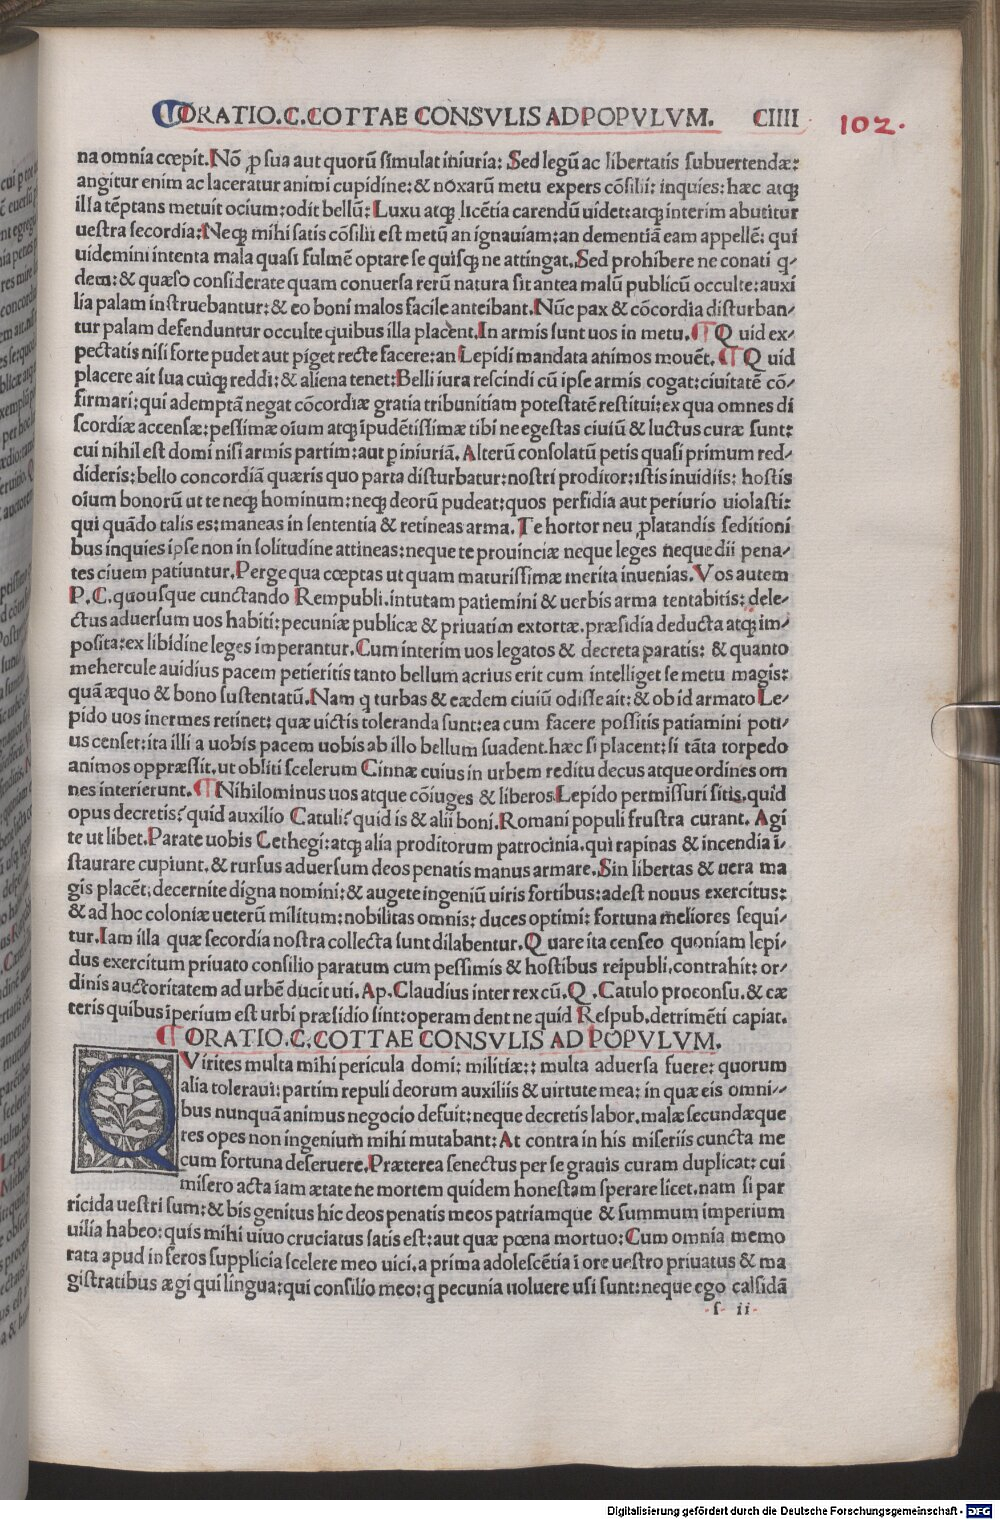 ORATIO.C.COTTAE CONSVLIS AD POPVLVM. CIIII
102.
na omnia cœpit.Nõ ꝓ sua aut quorũ simulat iniuria: Sed legũ ac libertatis subuertendæ:
angitur enim ac laceratur animi cupidine:& noxarũ metu expers cõsilii: inquies: hæc atqꝫ
illa tẽptans metuit ocium:odit bellũ: Luxu atqꝫ licẽtia carendũ uidet:atqꝫ interim abutitur
uestra secordia:Neqꝫ mihi satis cõsilii est metũ an ignauiam:an dementiã eam appellẽ: qui
uidemini intenta mala quasi fulmẽ optare se quisqꝫ ne attingat.Sed prohibere ne conati q-
dem:& quæso considerate quam conuersa rerũ natura sit antea malũ publicũ occulte:auxi
lia palam instruebantur:& eo boni malos facile anteibant.Nũc pax & cõcordia disturban-
tur palam defenduntur occulte quibus illa placent.In armis sunt uos in metu. ¶ Q uid ex-
pectatis nisi forte pudet aut piget recte facere:an Lepidi mandata animos mouẽt. ¶ Q uid
placere ait sua cuiqꝫ reddi:& aliena tenet:Belli iura rescindi cũ ipse armis cogat:ciuitatẽ cõ-
firmari:qui ademptã negat cõcordiæ gratia tribunitiam potestatẽ restitui:ex qua omnes di
scordiæ accensæ:pessimæ oĩum atqꝫ ĩpudẽtissimæ tibi ne egestas ciuiũ & luctus curæ sunt:
cui nihil est domi nisi armis partim:aut ꝑ iniuriã. Alterũ consolatũ petis quasi primum red-
dideris:bello concordiã quæris quo parta disturbatur:nostri proditor:istis inuidiis: hostis
oĩum bonorũ ut te neqꝫ hominum:neqꝫ deorũ pudeat:quos perfidia aut periurio uiolasti:
qui quãdo talis es:maneas in sententia & retineas arma. Te hortor neu ꝓlatandis seditioni
bus inquies ipse non in solitudine attineas:neque te prouinciæ neque leges neque dii pena-
tes ciuem patiuntur.Perge qua cœptas ut quam maturissimæ merita inuenias.Vos autem
P.C.quousque cunctando Rempubli.intutam patiemini & uerbis arma tentabitis: dele-
ctus aduersum uos habiti:pecuniæ publicæ & priuatim extortæ.præsidia deducta atqꝫ im-
posita:ex libidine leges imperantur.Cum interim uos legatos & decreta paratis: & quanto
mehercule auidius pacem petieritis tanto bellum acrius erit cum intelliget se metu magis:
quã æquo & bono sustentatũ.Nam q turbas & cædem ciuiũ odisse ait:& ob id armato Le-
pido uos inermes retinet: quæ uictis toleranda sunt:ea cum facere possitis patiamini poti-
us censet:ita illi a uobis pacem uobis ab illo bellum suadent.hæc si placent:si tãta torpedo
animos oppræssit.ut obliti scelerum Cinnæ cuius in urbem reditu decus atque ordines om
nes interierunt. ¶ Nihilominus uos atque cõiuges & liberos Lepido permissuri sitis.quid
opus decretis? quid auxilio Catuli? quid is & alii boni.Romani populi frustra curant. Agi
te ut libet.Parate uobis Cethegi:atqꝫ alia proditorum patrocinia.qui rapinas & incendia ĩ-
staurare cupiunt.& rursus aduersum deos penatis manus armare.Sin libertas & uera ma
gis placẽt.decernite digna nomini:& augete ingeniũ uiris fortibus:adest nouus exercitus:
& ad hoc coloniæ ueterũ militum:nobilitas omnis: duces optimi: fortuna meliores sequi-
tur.Iam illa quæ secordia nostra collecta sunt dilabentur.Q uare ita censeo quoniam lepi-
dus exercitum priuato consilio paratum cum pessimis & hostibus reipubli.contrahit: or-
dinis auctoritatem ad urbẽ ducit uti. Ap.Claudius inter rex cũ. Q .Catulo proconsu.& cæ
teris quibus ĩperium est urbi præsidio sint:operam dent ne quid Respub.detrimẽti capiat.
¶ ORATIO.C.COTTAE CONSVLIS AD POPVLVM.
QVirites multa mihi pericula domi: militiæ:: multa aduersa fuere: quorum
alia toleraui:partim repuli deorum auxiliis & uirtute mea: in quæ eis omni-
bus nunquã animus negocio defuit:neque decretis labor.malæ secundæque
res opes non ingenium mihi mutabant: At contra in his miseriis cuncta me
cum fortuna deseruere.Præterea senectus per se grauis curam duplicat: cui
misero acta iam ætate ne mortem quidem honestam sperare licet.nam si par
ricida uestri sum:& bis genitus hic deos penatis meos patriamque & summum imperium
uilia habeo: quis mihi uiuo cruciatus satis est: aut quæ pœna mortuo: Cum omnia memo
rata apud inferos supplicia scelere meo uici.a prima adolescẽtia ĩ ore uestro priuatus & ma
gistratibus ægi qui lingua:qui consilio meo: q pecunia uoluere usi sunt:neque ego calsidã
s ii
Digitalisierung gefördert durch die Deutsche Forschungsgemeinschaft - DFG